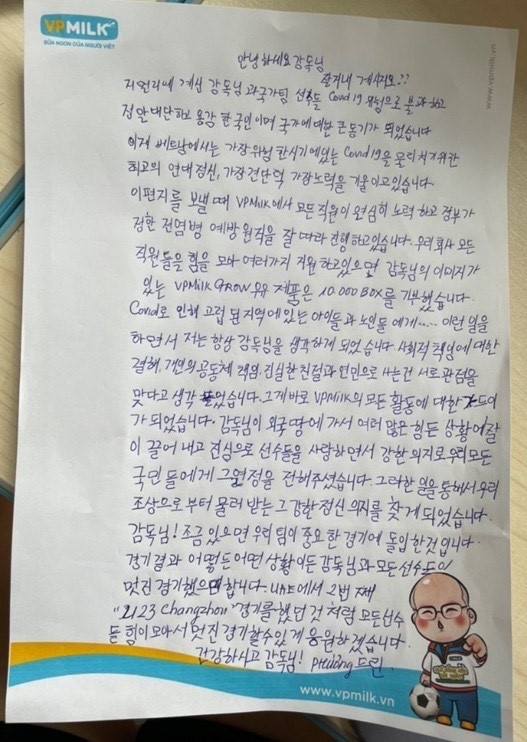 VPMILK
SỮA NGON CỦA NGƯỜI VIỆT
www.vpmilk.vn
안녕하세요 감독님
잘지내 계시지요??
지 계신 감독님과 국가팀 선수들 Covid 19 위험으로 불과하고
정말 대단하고 용감 한국인이며 국가에 대한 큰 동기가 되었습니다
이제 베트남에서는 가장 위험한 시기에 있는 Covid 19을 물리치기위한
최고의 연대정신, 가장 단력 가장 노력을 기울이고 있습니다.
이편지를 보낼 때 VPMilk에서 모든 직원이 열심히 노력하고 정부가
정한 전염병 예방 원칙을 잘 따라 진행하고있습니다. 우리회사 모든
직원들을 힘을 모아 여러가지 지원하고있으면 감독님의 이미지가
있는 VPMilk GROW 우유 제품은 10.000 BOX를 기부했습니다.
Covid로 인해 고립 된 지역에 있는 아이들과 노인들에게..... 이런 일을
하면서 저는 항상 감독님을 생각하게 되었습니다 사회적 책임에 대한
결해, 개인의 공동체 책임, 진실한 친절과 연민으로 사는건 서로 관점을
맞다고 생각 되었습니다. 그게 바로 VPMilk의 모든 활동에 대한 가이드이
가 되었습니다. 감독님이 외국땅에 가서 여러 많은 힘든 상황에 잘
이끌어 내고 진심으로 선수들을 사랑하면서 강한 의지로 우리 모든
국민들에게 그 열정을 전해주셨습니다. 그러한 일을 통해서 우리
조상으로 부터 물려 받는 그 강한 정신 의지를 찾게 되었습니다.
감독님! 조금 있으면 우리팀이 중요한 경기에 돌입한 것입니다.
경기결과 어떻든 어떤 상황이든 감독님과 모든선수들이
멋진 경기했으면 합니다. UAE에서 2번 째
"U23 Changzhou" 경기를 했던 것 처럼 모든선수
들 힘이 모아서 멋진 경기할수있게 응원하겠습니다.
건강하시고 감독님! Phượng 드림.
www.vpmilk.vn